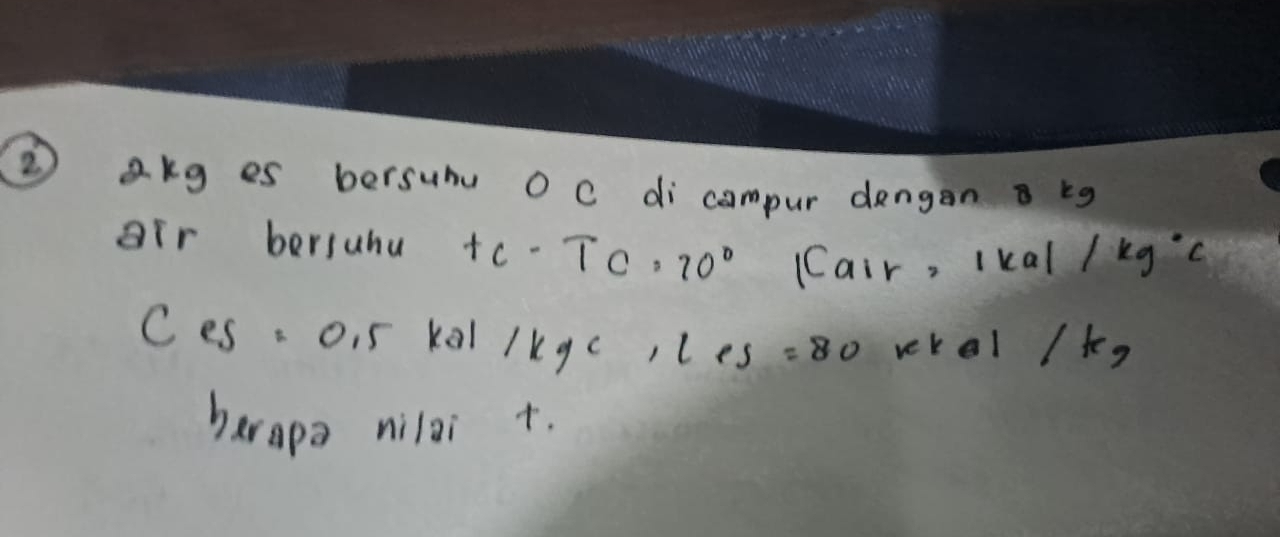 2 2kg es bersuhu 0 C di campur dengan 8 kg
air bersuhu tc - Tc = 20° (Cair = 1 kal / kg°C
C es = 0,5 kal / kg c , L es = 80 kkal / kg
berapa nilai t.